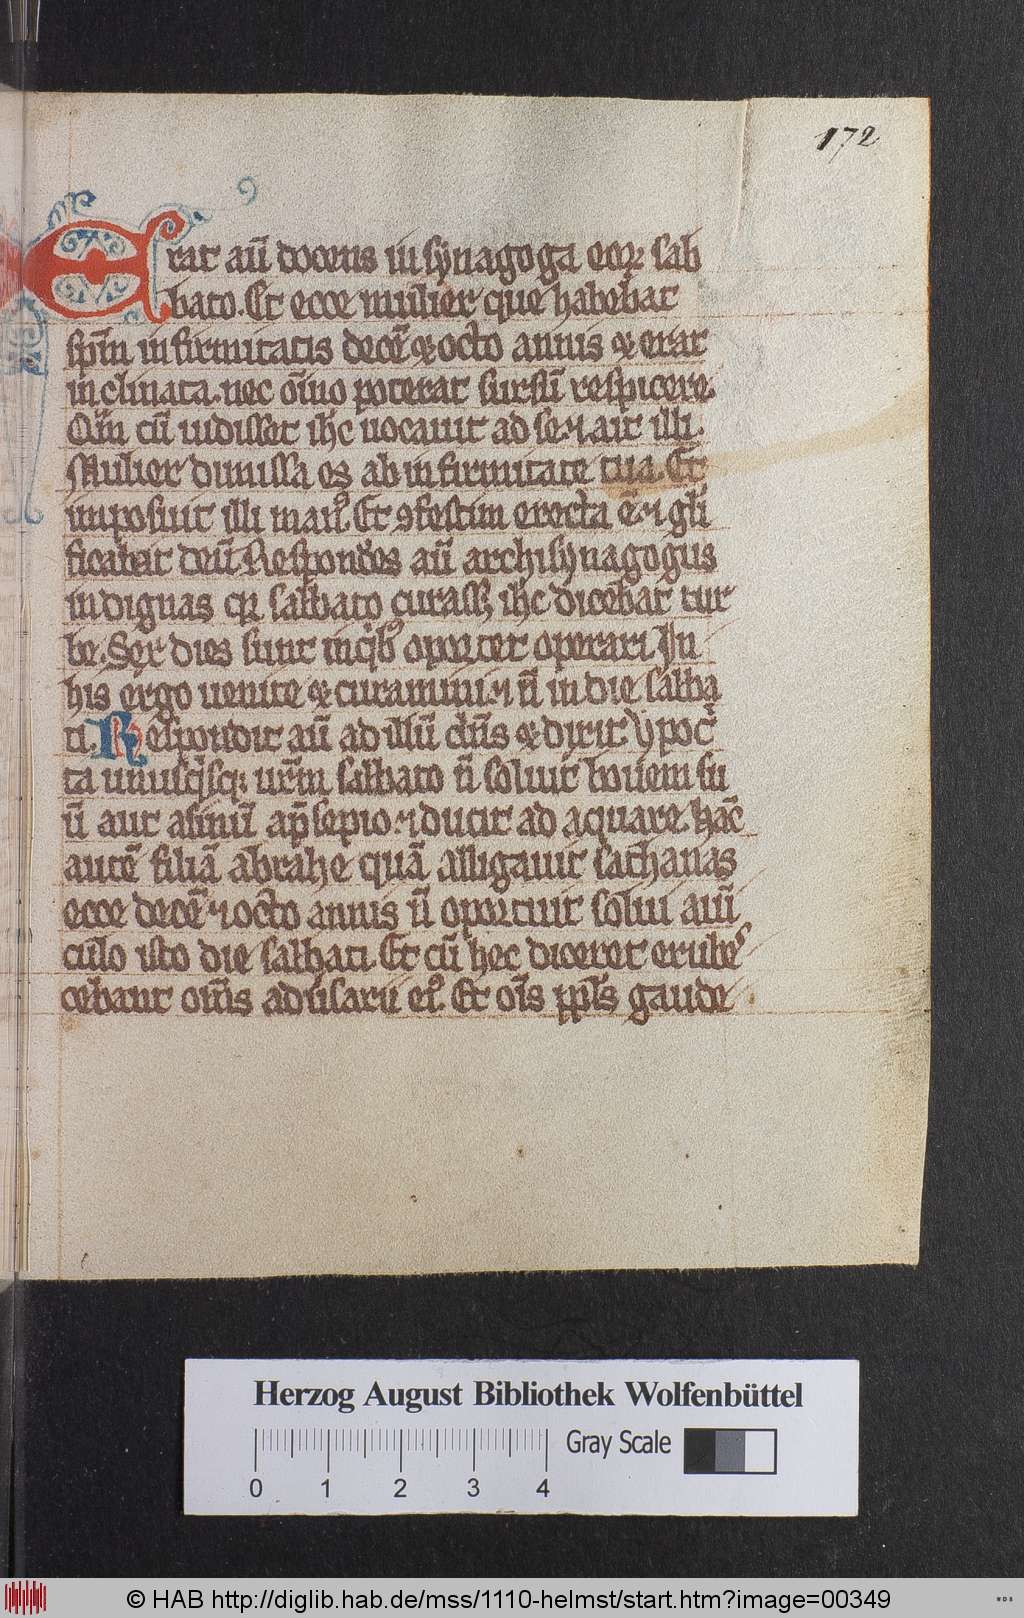 172
Erat aū docens in synagoga eoꝝ sab
bato. Et ecce mulier que habebat
sp̄m infirmitatis decē ⁊ octo annis ⁊ erat
inclinata. nec oīno poterat sursū respicere.
Q̄m cū uidisset ih̄c uocauit ad se. ⁊ ait illi.
Mulier dimissa es ab infirmitate tua. Et
imposuit illi manꝰ. Et ꝯfestim erecta ē. ⁊ gl̄i
ficabat deū. Respondēs aū archisynagogus
indignas qꝛ sabbato curasset ih̄c dicebat tur
be. Sex dies sunt in qⁱbꝰ oportet operari. In
his ergo uenite ⁊ curamini. ⁊ n̄ in die sabba
ti. Respondit aū ad illū dn̄s ⁊ dixit ypocⁱ
ta unusqⁱsqꝫ ur̄m sabbato n̄ soluit bouem su
ū aut asinū a p̄sepio. ⁊ ducit ad aquare. hāc
autē filiā abrahe quā alligauit sathanas
ecce decē ⁊ octo annis n̄ oportuit solui a uī
culo isto die sabbati. Et cū hec diceret erubes
cebant om̄s aduersarii eiꝰ. Et oīs ppl̄s gaude
Herzog August Bibliothek Wolfenbüttel
Gray Scale
0 1 2 3 4
© HAB http://diglib.hab.de/mss/1110-helmst/start.htm?image=00349